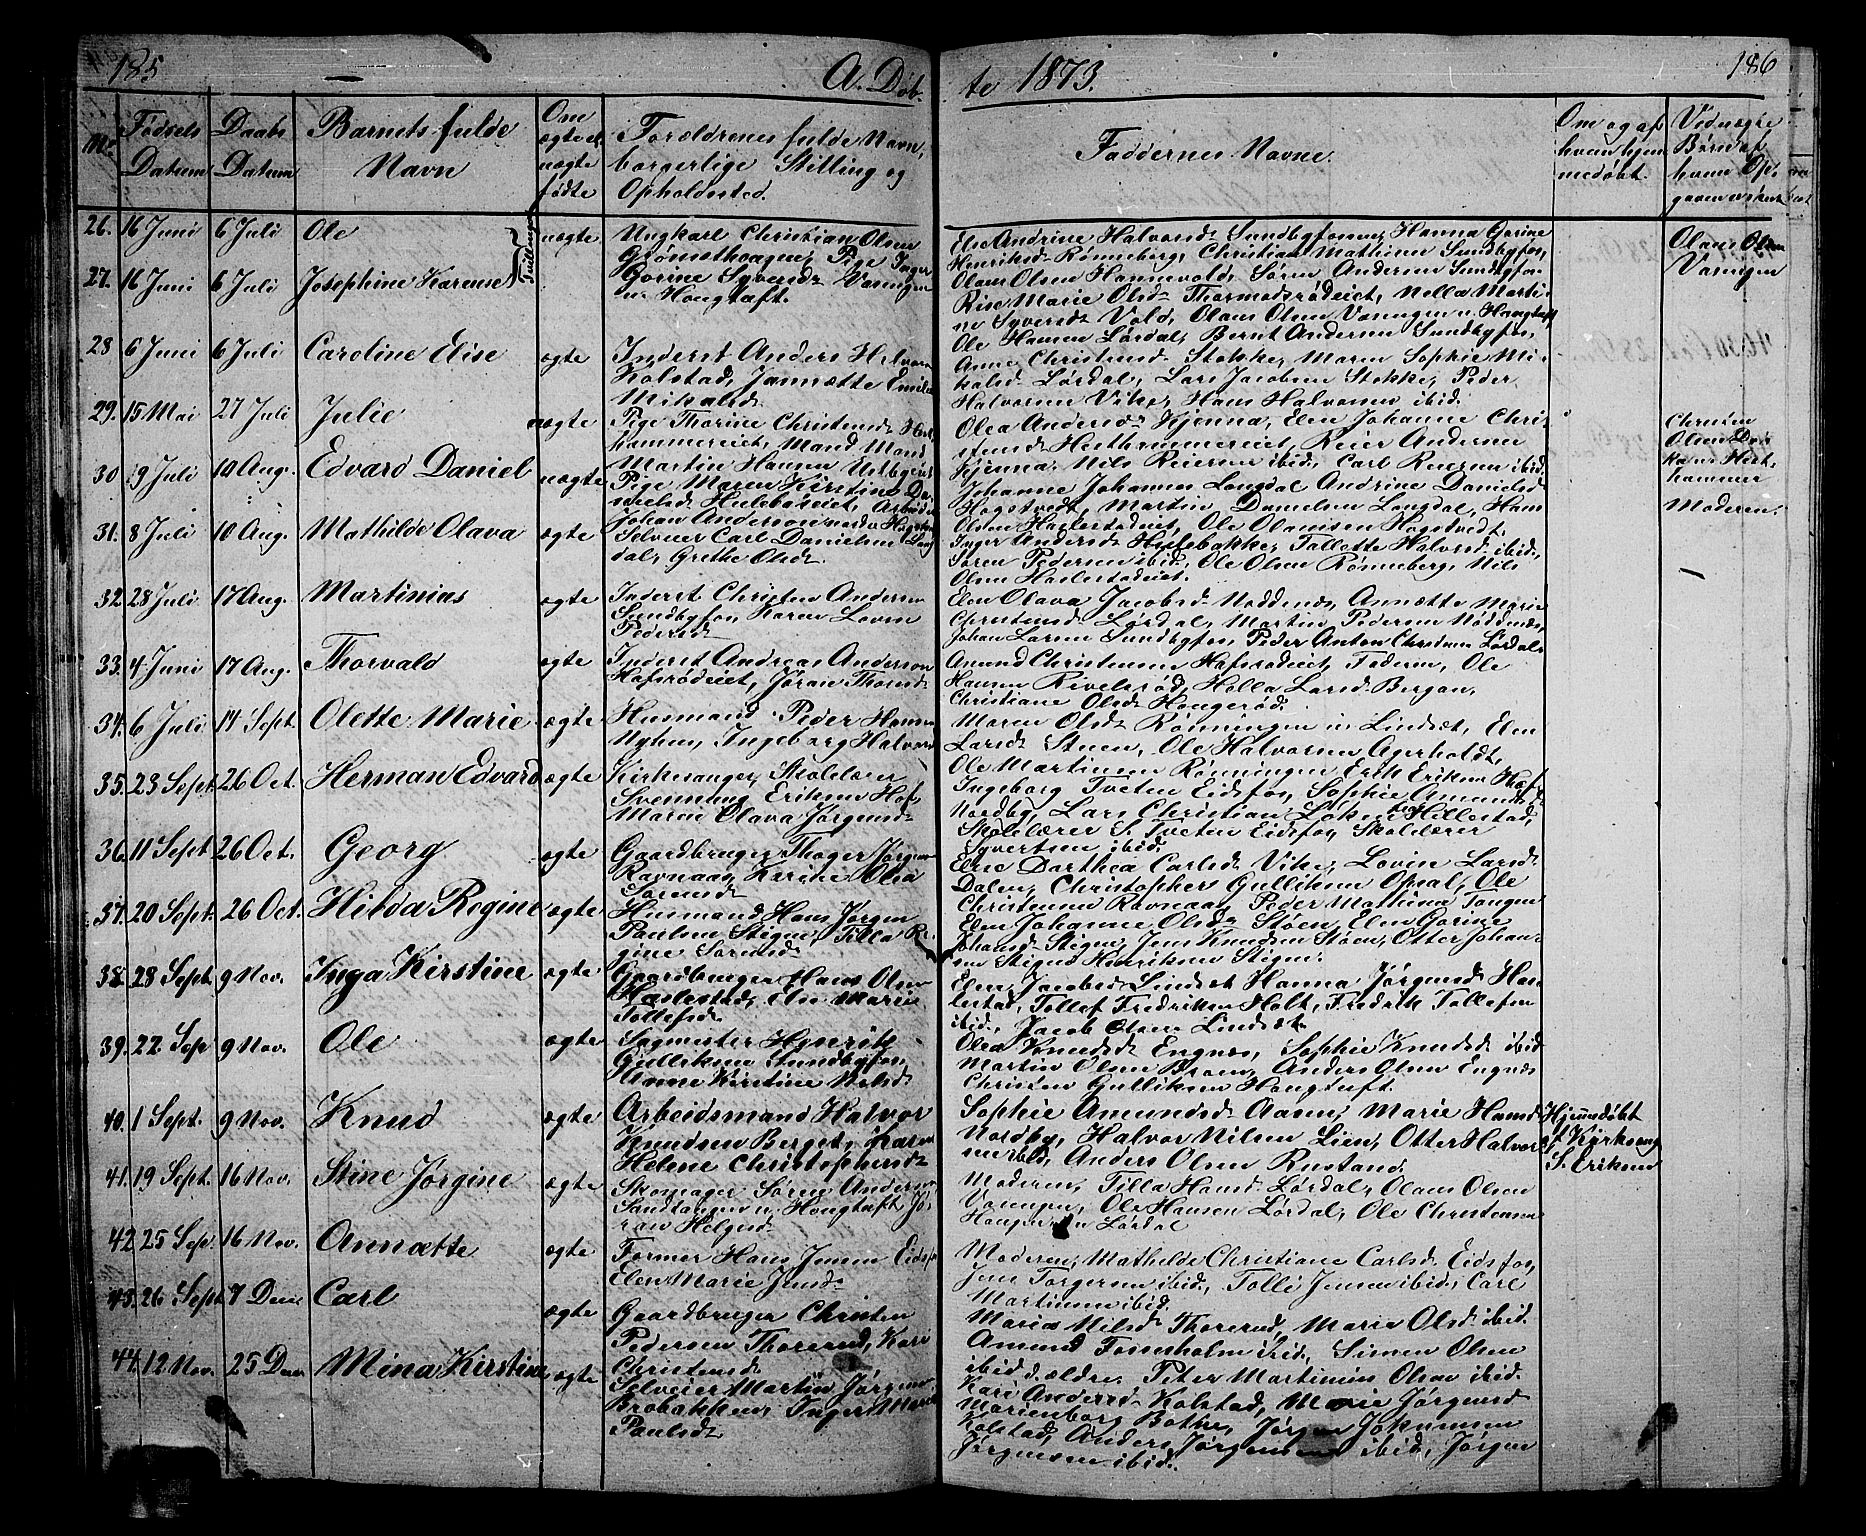 185
A. Døb-
te 1873.
186
No.
Fødsels Datum
Daabs Datum
Barnets fulde Navn
Om ægte el. uægte fødte
Forældrenes fulde Navn, borgerlige Stilling og Opholdssted.
Faddernes Navne.
Om og af hvem hjemmedøbt.
Ved uægte Børn af hvem Opgaven
26. 16 Juni 6 Juli Ole uægte Ungkarl Christian Olsen
27. 16 Juni 6 Juli Josephine Karense Tvillinger
Pige Inger
Gorine Syversd. Vasingen
u. Hougtuft.
Else Andrine Halvorsd. Sundbyfossen, Hanna Gorine
Henriksd. Rønneberg, Christian Mathisen Sundbyfos,
Olaus Olsen Hannevold, Søren Andersen Sundbyfos.
Marie Olsd. Thormodsrødeiet, Nella Marti-
ne Syversd. Vold, Olaus Olsen Vasingen u. Hougtuft
Olaus Olsen
Vasingen
28 6 Juni 6 Juli Caroline Elise ægte Inderst Anders Halvorsen
Kolstad, Jannætte Emilie
Mikalsd.
Ole Hansen Lørdal, Bernt Andersen Sundbyfos,
Anne Christensd. Stokke, Maren Sophie Mi-
kalsd. Lørdal, Lars Jacobsen Stokke, Peder
Halvorsen Vike, Hans Halvorsen ibid.
29. 15 Mai 27 Juli Julie uægte Pige Thorine Christensd. Hest-
hammereiet, Mand
Martin Hansen
Olea Andersd. Kjenna, Elen Johanne Chri-
stensd. Hesthammereiet, Reier Andersen
Kjenna, Nils Reiersen ibid. Carl Reiersen ibid.
Christen
Olsen
Hest-
hammer
30 9 Juli 10 Aug. Edvard Daniel uægte Pige Maren Kirstine Da-
nielsd. Hulebakeiet,
Johan Anderson
Johanne Johannesd. Langdal, Andrine Danielsd.
Hogstvedt, Martin Danielsen Langdal, Hans
Olsen Haslestadeiet, Ole Olausen Hogstvedt.
Moderen.
31. 8 Juli 10 Aug. Mathilde Olava ægte Selveier Carl Danielsen Lang-
dal, Grethe Olsd.
Inger Andersd. Hulebakke, Tallette Halvorsd. ibid,
Søren Pedersen ibid, Ole Olsen Rønneberg, Nils
Olsen Haslestadeiet.
32. 28 Juli 17 Aug. Martinias ægte Inderst Christen Andersen
Sundbyfos, Karen Lovise
Pedersd.
Elen Olava Jacobsd. Noddenæs, Annætte Marie
Christensd. Lørdal, Martin Pedersen Noddenæs,
Johan Larsen Sundbyfos, Peder Anton Christensen Lørdal
33. 4 Juni 17 Aug. Thorvald ægte Inderst Andreas Anderson
Hafsrødeiet, Jøran Thorsd.
Amund Christensen Hafsrødeiet, Faderen, Ole
Hansen Rivelsrød, Holla Larsd. Bergan,
Christiane Olsd. Hougerød.
34. 6 Juli 14 Sept. Olette Marie ægte Husmand Peder Hansen
Nyhus, Ingeborg Halvorsd.
Maren Olsd. Rønningen u. Lindsæt, Elen
Larsd. Steen, Ole Halvorsen Agerholdt,
Ole Martinsen Rønningen, Erik Eriksen Hof
35. 23 Sept. 26 Oct. Herman Edvard ægte Kirkesanger, Skolelærer
Svenning Eriksen Hof,
Maren Olava Jørgensd.
Ingeborg Tveten Eidsfos, Sophie Amundsd.
Nordby, Lars Christian Løken Hillestad,
Skolelærer S. Tveten Eidsfos, Skolelærer
Syvertsen ibid.
36. 11 Sept 26 Oct. Georg ægte Gaardbruger Thoger Jørgensen
Ravnaas, Karine Olea
Sørensd.
Else Dorthea Carlsd. Vike, Lovise Larsd.
Dalen, Christopher Gulliksen Opsal, Ole
Christensen Ravnaas, Peder Mathisen Tangen
37. 20 Sept. 26 Oct. Hilda Regine ægte Husmand Hans Jørgen
Paulsen Stigen, Tilla Re-
gine Sørensd.
Elen Johanne Olsd. Støen, Elen Gorine
Johansd. Stigen, Jens Knudsen Støen, Otter Johan-
sen Stigen Henriksen Stigen.
38. 28 Sept. 9 Nov. Inga Kirstine ægte Gaardbruger Hans Olsen
Haslestad, Else Marie
Tollefsd.
Elen Jacobsd. Lindsæt, Hanna Jørgensd. Has-
lestad, Tollef Fredriksen Holt, Fredrik Tollefsen
ibid, Jacob Olsen Lindsæt.
39. 22 Sep 9 Nov. Ole ægte Sagmester
Gulliksen Sundbyfos,
Anne Kirstine Nilsd.
Olea Knudsd. Engnæs, Sophie Knudsd. ibid
Martin Olsen Braan, Anders Olsen Engnæs
Christen Gulliksen Hougtuft.
40. 1 Sept. 9 Nov. Knud ægte Arbeidsmand Halvor
Knudsen Berget, Karen
Helene Christophersd.
Sophie Amundsd. Aasen, Marie Hansd.
Nordby, Halvor Nilsen Lien, Otter Halvor-
sen ibid, Anders Olsen Rustand.
Hjemmedøbt
af Kirkesang.
S. Eriksen
41. 19 Sept. 16 Nov. Stine Jørgine ægte Skomager Søren Andersen
Sandtangen u. Hougtuft, Jø-
ran Helgesd.
Moderen, Tilla Hansd. Lørdal, Olaus Olsen
Vasingen, Ole Hansen Lørdal, Ole Christensen
Lørdal
42 25 Sep. 16 Nov. Annætte ægte Former Hans Jensen Eidsfos
Elen Marie Jensd.
Moderen, Mathilde Christiane Carlsd. Eidsfos,
Jens Torgersen ibid., Tolle Jensen ibid, Carl
Martinsen ibid.
43. 26 Sept 7 Dec Carl ægte Gaardbruger Christen
Pedersen Thorerud, Kari
Christensd.
Maria Nilsd. Thorerud, Maria Olsd. ibid.
Amund Fossesholm ibid, Simen Olsen
ibid ældre, Peter Martinius Olsen ibid.
44. 12 Nov. 25 Dec Mina Kirstine ægte Selveier Martin Jørgensen
Brobakken, Inger Marie
Paulsd.
Kari Andersd. Kolstad, Marie Jørgensd.
Marienborg Botne, Jørgen Johannesen
Kolstad, Anders Jørgensen ibid, Jørgen
Jørgensen ibid.